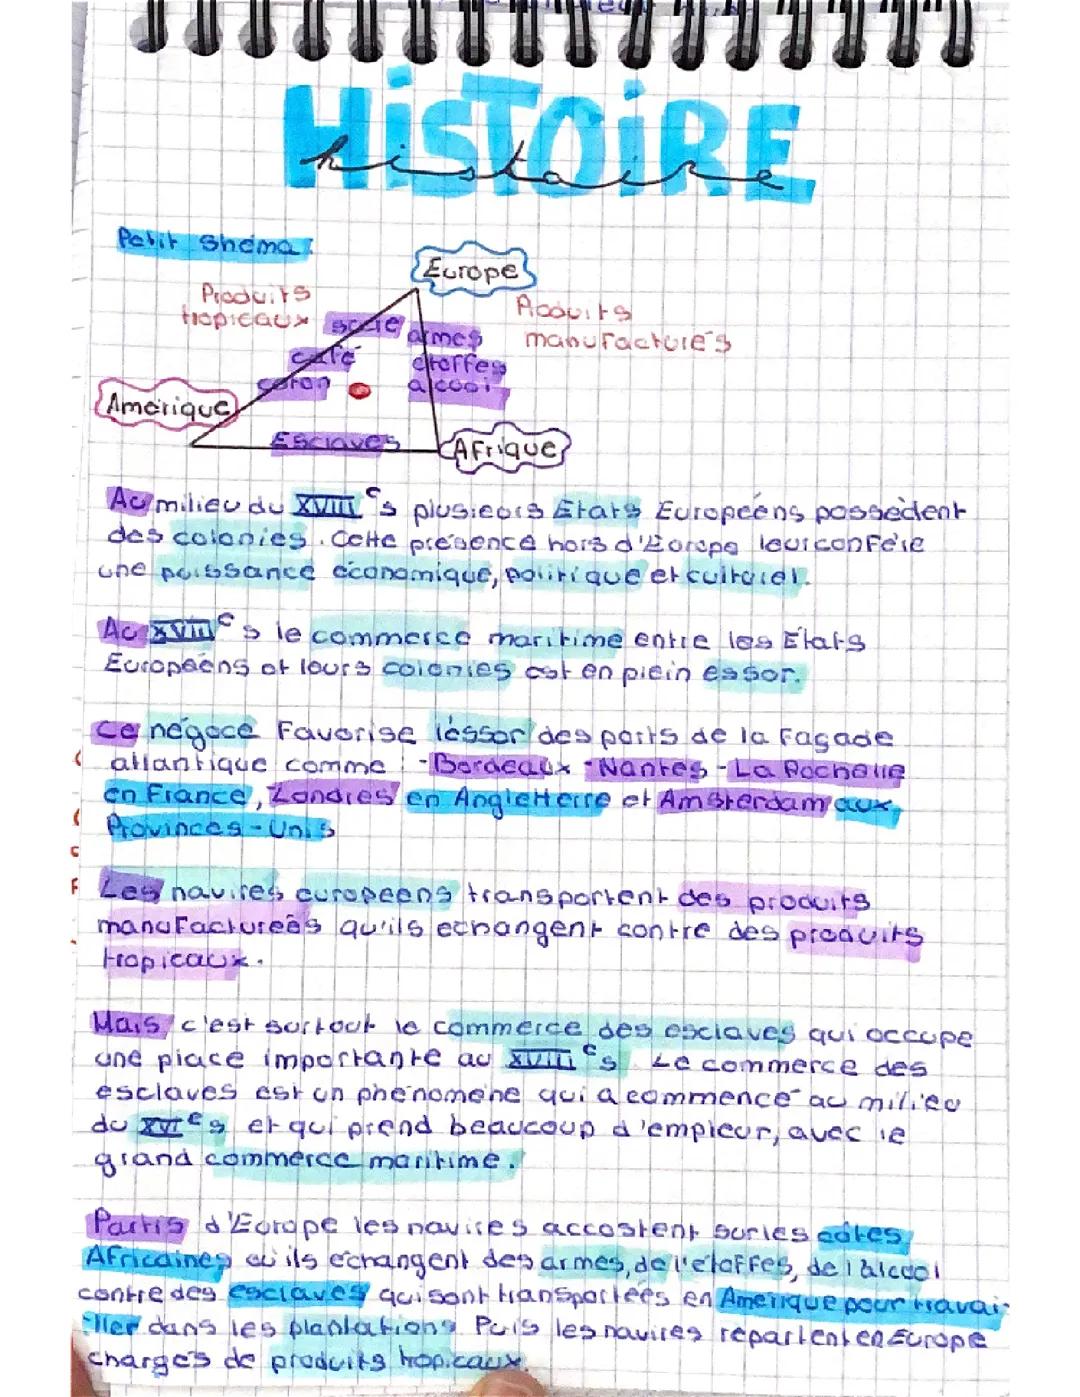 HiSTOiRE
histoire
Petit Shéma:
Europe
Produits
tropicaux
Produits
manufacturés
sucre
armes
café
étoffes
coton
alcool
Amérique
Esclaves
Afrique
Au milieu du XVIIIe s plusieurs Etats Européens possèdent
des colonies. Cette présence hors d'Europe leur confère
une puissance économique, politique et culturel.
Au XVIIIe s le commerce maritime entre les Etats
Européens et leurs colonies est en plein essor.
Ce négoce Favorise léssor des ports de la Façade
atlantique comme : -Bordeaux -Nantes -La Rochelle
en France, Londres en Angletterre et Amsterdam aux
Provinces-Unis
Les navires européens transportent des produits
manufactureés qu'ils echangent contre des produits
tropicaux.
Mais c'est surtout le commerce des esclaves qui occupe
une place importante au XVIIIe s. Le commerce des
esclaves est un phénomène qui a commencé au milieu
du XVIe s et qui prend beaucoup d'empleur, avec le
grand commerce maritime.
Partis d'Europe les navires accostent sur les côtes
Africaines où ils échangent des armes, de l'étoffes, de l'alcool
contre des esclaves qui sont transportées en Amérique pour travai-
ller dans les plantations. Puis les navires repartent en Europe
chargés de produits tropicaux.